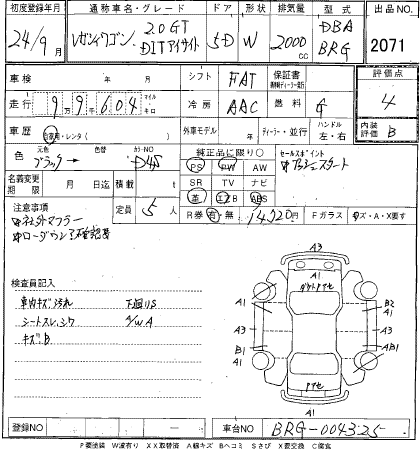 初度登録年月 通称車名・グレード ドア 形状 排気量 型式 出品NO
24/9月 レガシィワゴン 2.0GT DITアイサイト 5D W 2000cc DBA BRG 2071
車検 年 月 シフト FAT 保証書 評価点 4
走行 99604 マイル・キロ 冷房 AAC 燃料 G
車歴 自家用・レンタ( ) 外車モデル 年 ディーラー・並行 ハンドル 左・右 内装評価 B
色 元色 ブラック 色替 カラーNO D4S
純正品に限り○ セールスポイント
PS PW AW プッシュスタート
名義変更期限 月 日迄 積載 t SR TV ナビ
定員 5人 革 エアB ABS
R券 有・無 14920円 Fガラス キズ・A・X要
注意事項
社外マフラー
ローダウン
検査員記入
車内キズ汚れ 下廻りS
シートスレ,シワ A/W A
キズB
A3
A1
A1 A1
B2
A1
A3 A3
B1 AB1
A1 A1
A1
登録NO 車台NO BRG-004325
P要塗装 W波有り XX取替済 A線キズ Bヘコミ Sさび X要交換 C腐食